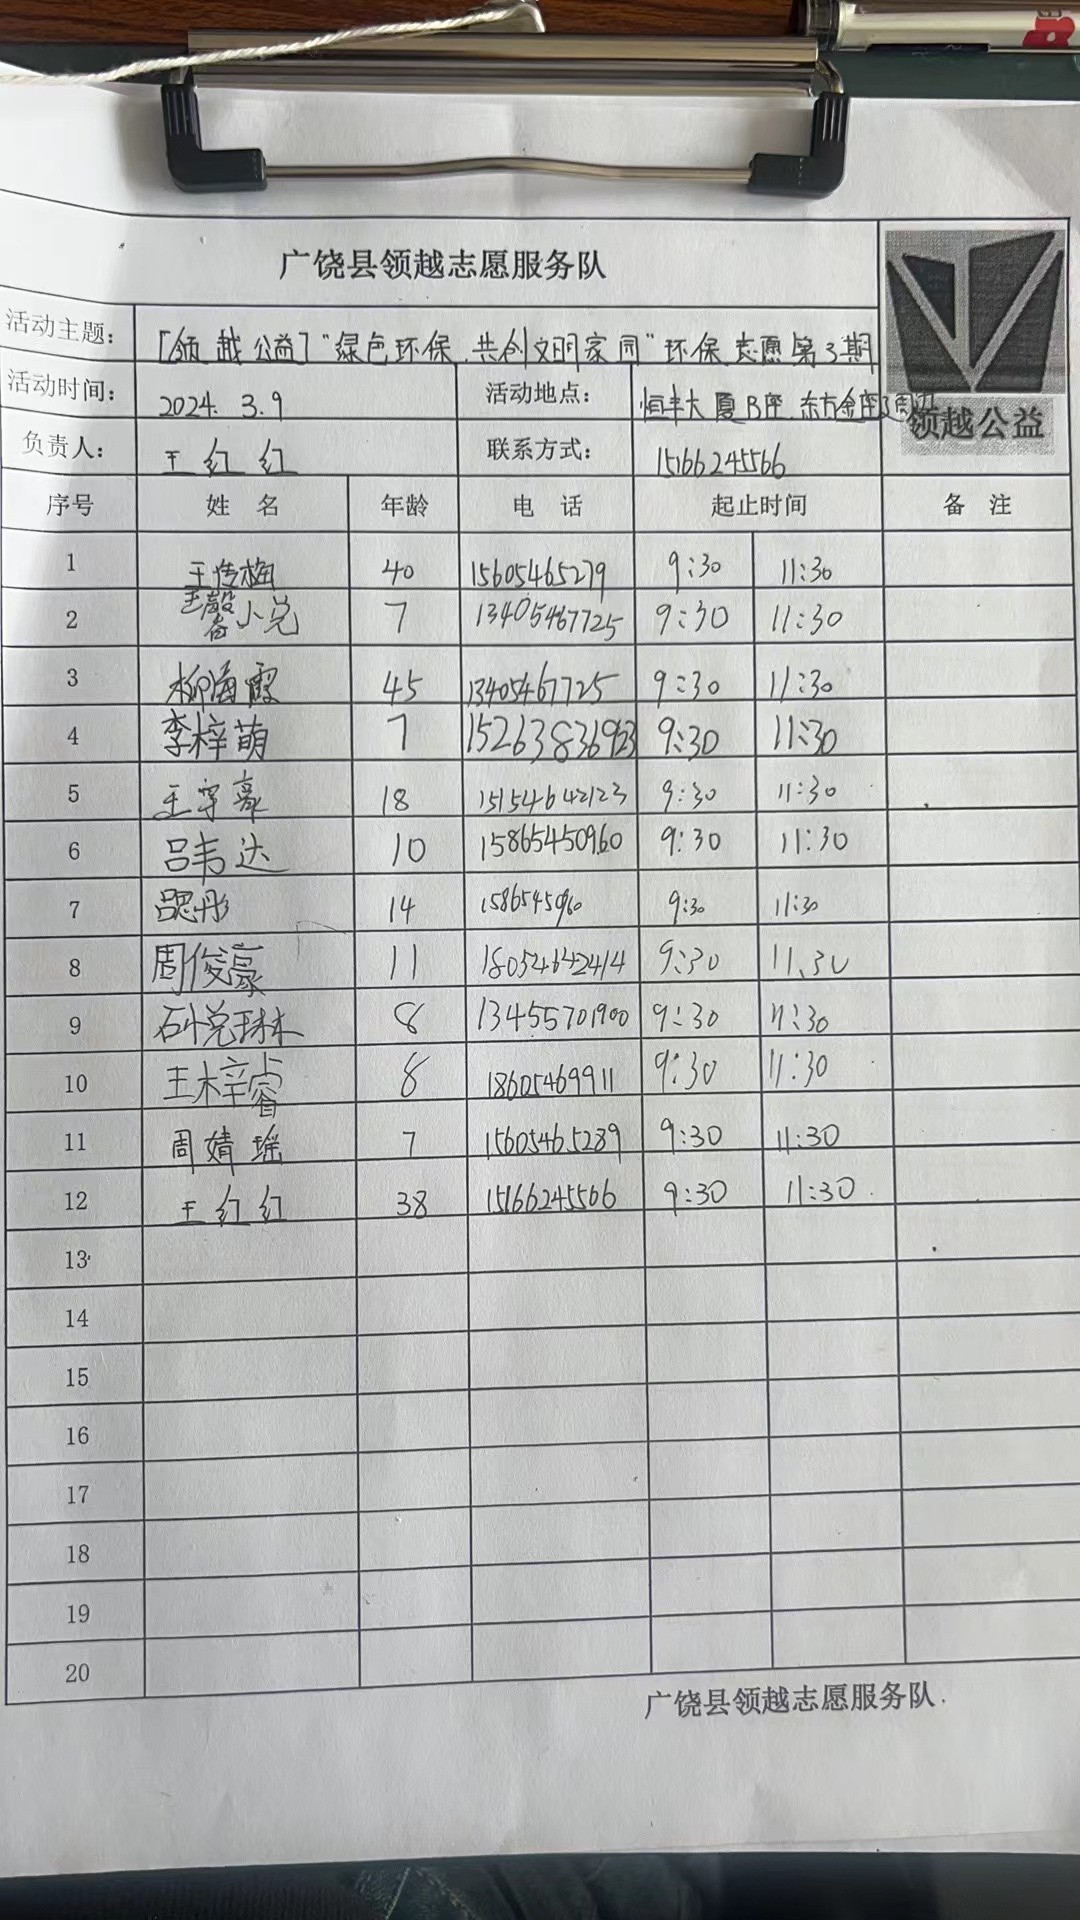 广饶县领越志愿服务队
活动主题： [领越公益]"绿色环保.共创文明家园"环保志愿第3期
活动时间： 2024. 3.9 活动地点： 恒丰大厦B座.东方金座周边
领越公益
负责人： 王红红 联系方式： 15166245566
序号 姓 名 年龄 电 话 起止时间 备 注
1 王传梅 40 15605465279 9:30 11:30
2 小兑 7 13405467725 9:30 11:30
3 柳海霞 45 13405467725 9:30 11:30
4 李梓萌 7 15263836923 9:30 11:30
5 王宇豪 18 15154642123 9:30 11:30
6 吕韦达 10 15865450960 9:30 11:30
7 14 9:30 11:30
8 周俊豪 11 18054642414 9:30 11.30
9 石悦琳 8 13455701900 9:30 11:30
10 王梓睿 8 18605469911 9:30 11:30
11 周婧瑶 7 15605465289 9:30 11:30
12 王红红 38 15166245566 9:30 11:30
13
14
15
16
17
18
19
20
广饶县领越志愿服务队.